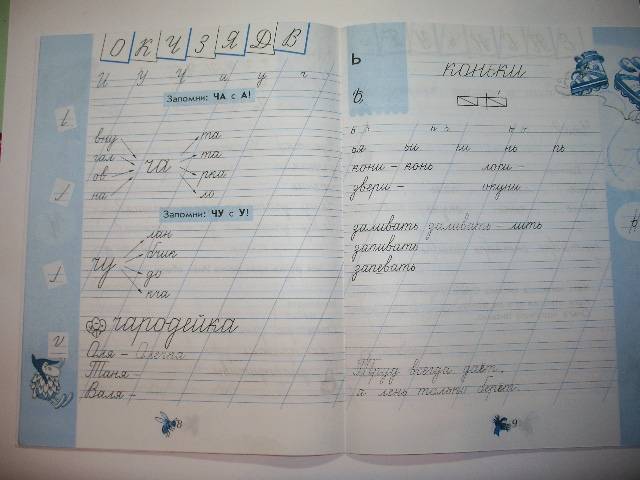 О К Ч З Я Д В
и У У и у ч
Запомни: ЧА с А!
вну
гал
ов
на
ча
та
та
рка
ло
Запомни: ЧУ с У!
чу
лан
бчик
до
пча
чародейка
Оля – Олечка
Таня –
Валя –
8
ь
коньки
ья ьи ни нь рь
кони – конь
двери –
окуни
заливать заливать – лить
запивать
запевать
Труд всегда даёт,
а лень только берёт.
9